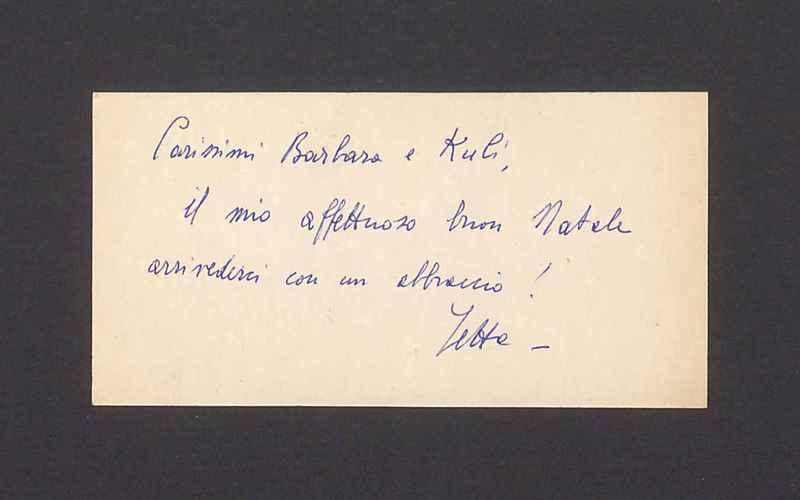 Carissimi Barbara e Kuli,
il mio affettuoso buon Natale
arrivederci con un abbraccio!
Jetta –